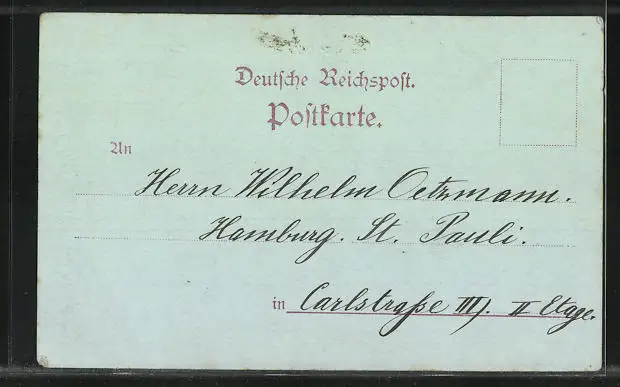 Deutsche Reichspost.
Postkarte.
An
Herrn Wilhelm Oetzmann.
Hamburg. St. Pauli.
in Carlstraße III). II Etage.